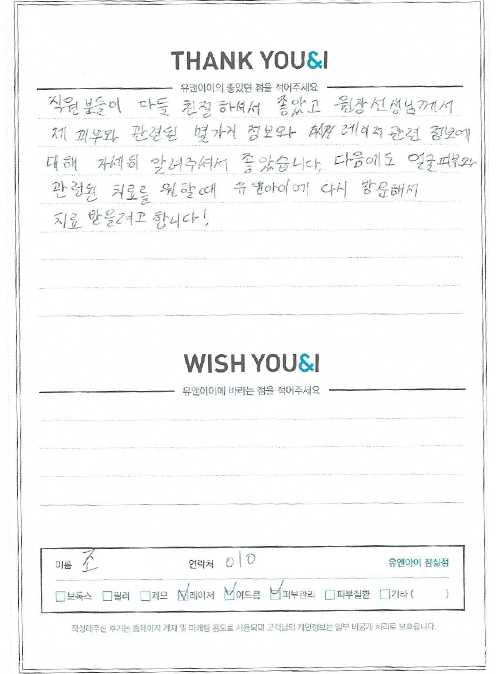 THANK YOU&I
유앤아이의 좋았던 점을 적어주세요
직원분들이 다들 친절하셔서 좋았고 원장선생님께서
제 피부와 관련된 몇가지 정보와 레이저 관련 정보에
대해 자세히 알려주셔서 좋았습니다. 다음에도 얼굴피부와
관련된 치료를 원할때 유앤아이에 다시 방문해서
치료 받을려고 합니다!
WISH YOU&I
유앤아이에 바라는 점을 적어주세요
이름 조 연락처 010 유앤아이 잠실점
보톡스 필러 제모 레이저 여드름 피부관리 피부질환 기타 ( )
작성해주신 후기는 홈페이지 게재 및 마케팅 용도로 사용되며 고객님의 개인정보는 일부 비공개 처리로 보호됩니다.